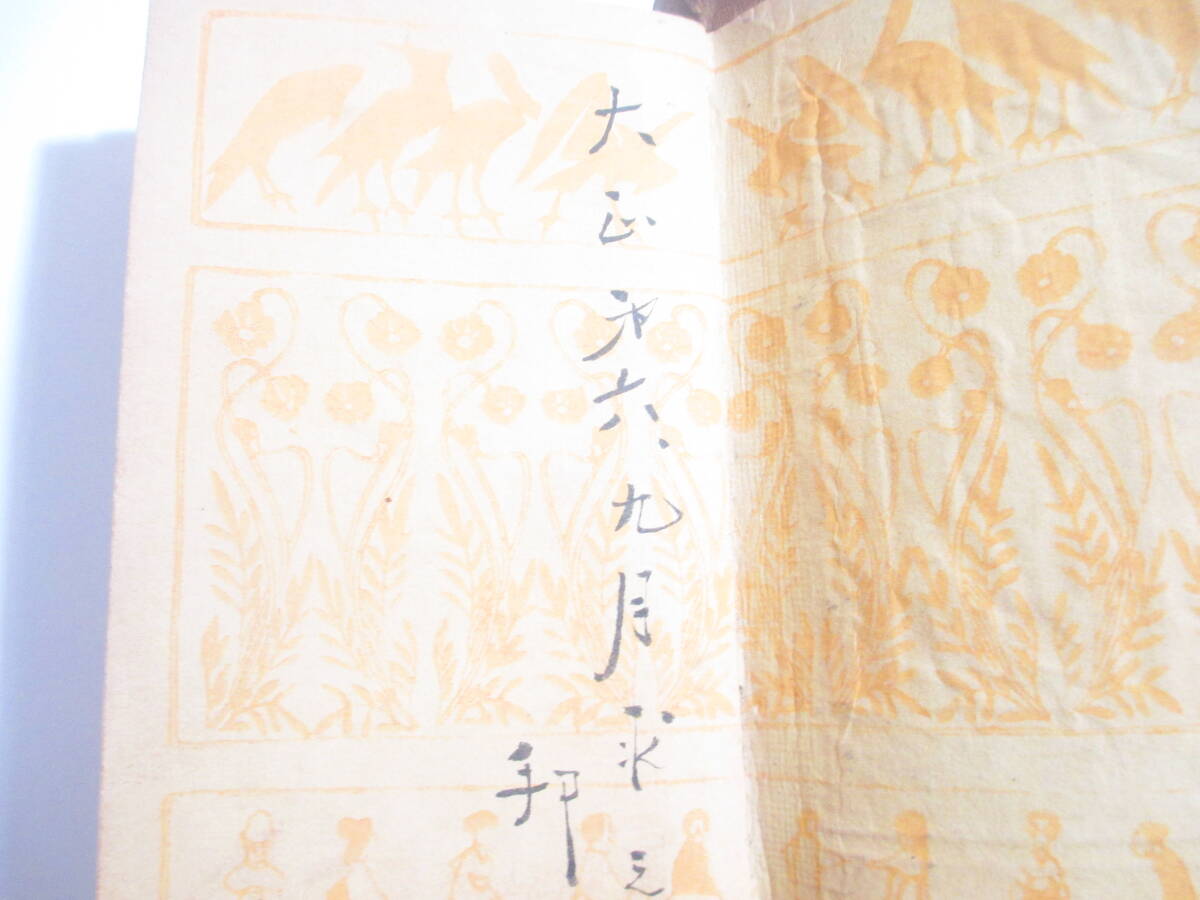 大正第六、九月求之
邦